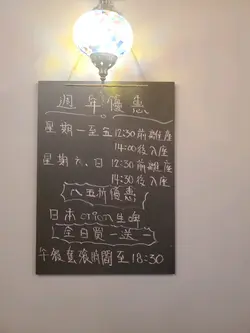 週年優惠
星期一至五12:30前離座
14:00後入座
星期六、日 12:30前離座
14:30後入座
八五折優惠
日本orion生啤
全日買一送一
午飯套湌時間至18:30